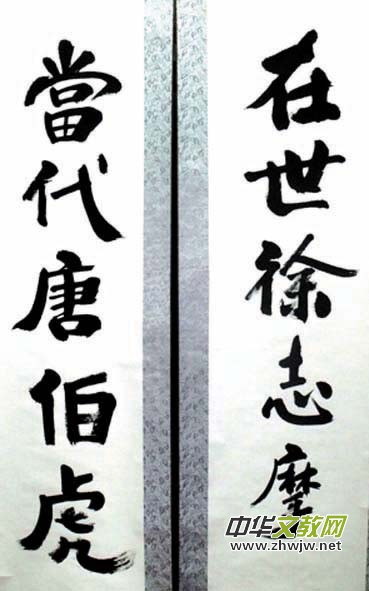 在世徐志摩
當代唐伯虎
中华文教网
www.zhwjw.net